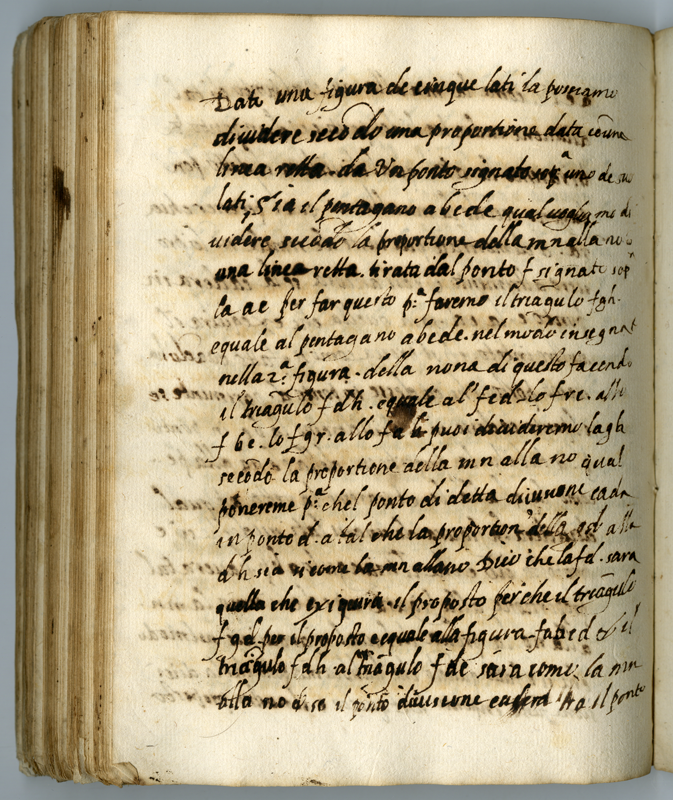 Data una figura de cinque lati la possiamo
dividere secōdo una proportione data cō una
linea retta. da Un ponto signato sopª uno de su
lati, Sia il pentagano abcde qual vogliamo di
videre secōdo la proportione della mn alla no
una linea retta. tirata dal ponto f signato sopª
la ae per far questo pª faremo il triāgulo fgh.
equale al pentagano abcde. nel modo insegnat
nella 2ª figura. della nona di questo facendo
il triāgulo fdh. equale al fed. lo fre. allo
fbe. lo fgr. allo fab puoi divideremo la gh
secōdo la proportione della mn alla no qual
poneremo pª chel ponto di detta divisione cada
in ponto d. a tal che la proportionᵉ della gd alla
dh sia si come la mn alla no. Dico che la fd. sara
quella che exiquira il proposto perche il triāgulo
fgd per il proposto e equale alla figura fabcd & il
triāgulo fdh al triāgulo fde sara come la mn
alla no & se il pōnto divisione il ponto